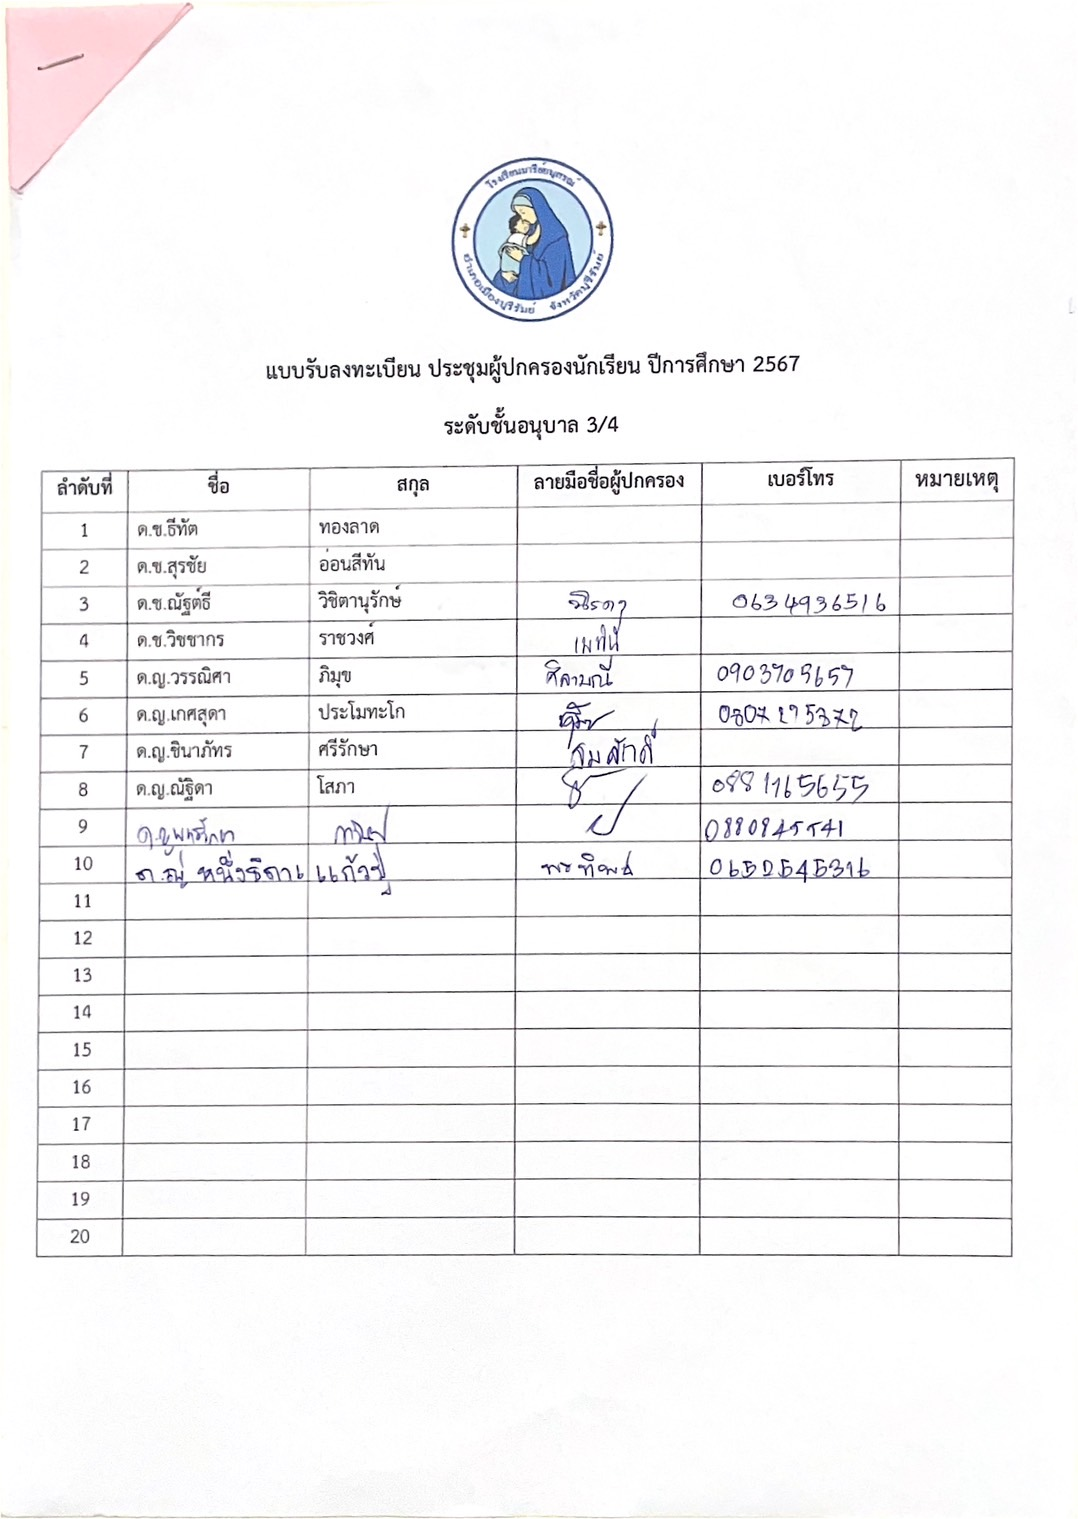 โรงเรียนมารีย์อนุสรณ์
อำเภอเมืองบุรีรัมย์ จังหวัดบุรีรัมย์
แบบรับลงทะเบียน ประชุมผู้ปกครองนักเรียน ปีการศึกษา 2567
ระดับชั้นอนุบาล 3/4
ลำดับที่ ชื่อ สกุล ลายมือชื่อผู้ปกครอง เบอร์โทร หมายเหตุ
1 ด.ช.ธีทัต ทองลาด
2 ด.ช.สุรชัย อ่อนสีทัน
3 ด.ช.ณัฐต์ธี วิชิตานุรักษ์ 0634936516
4 ด.ช.วิชชากร ราชวงศ์
5 ด.ญ.วรรณิศา ภิมุข ศิลามณี 0903709657
6 ด.ญ.เกศสุดา ประโมทะโก
7 ด.ญ.ชินาภัทร ศรีรักษา สมศักดิ์
8 ด.ญ.ณัฐิดา โสภา 0881165655
9
10 ด.ญ หนึ่งธิดา แก้วปู่ 0652545316
11
12
13
14
15
16
17
18
19
20